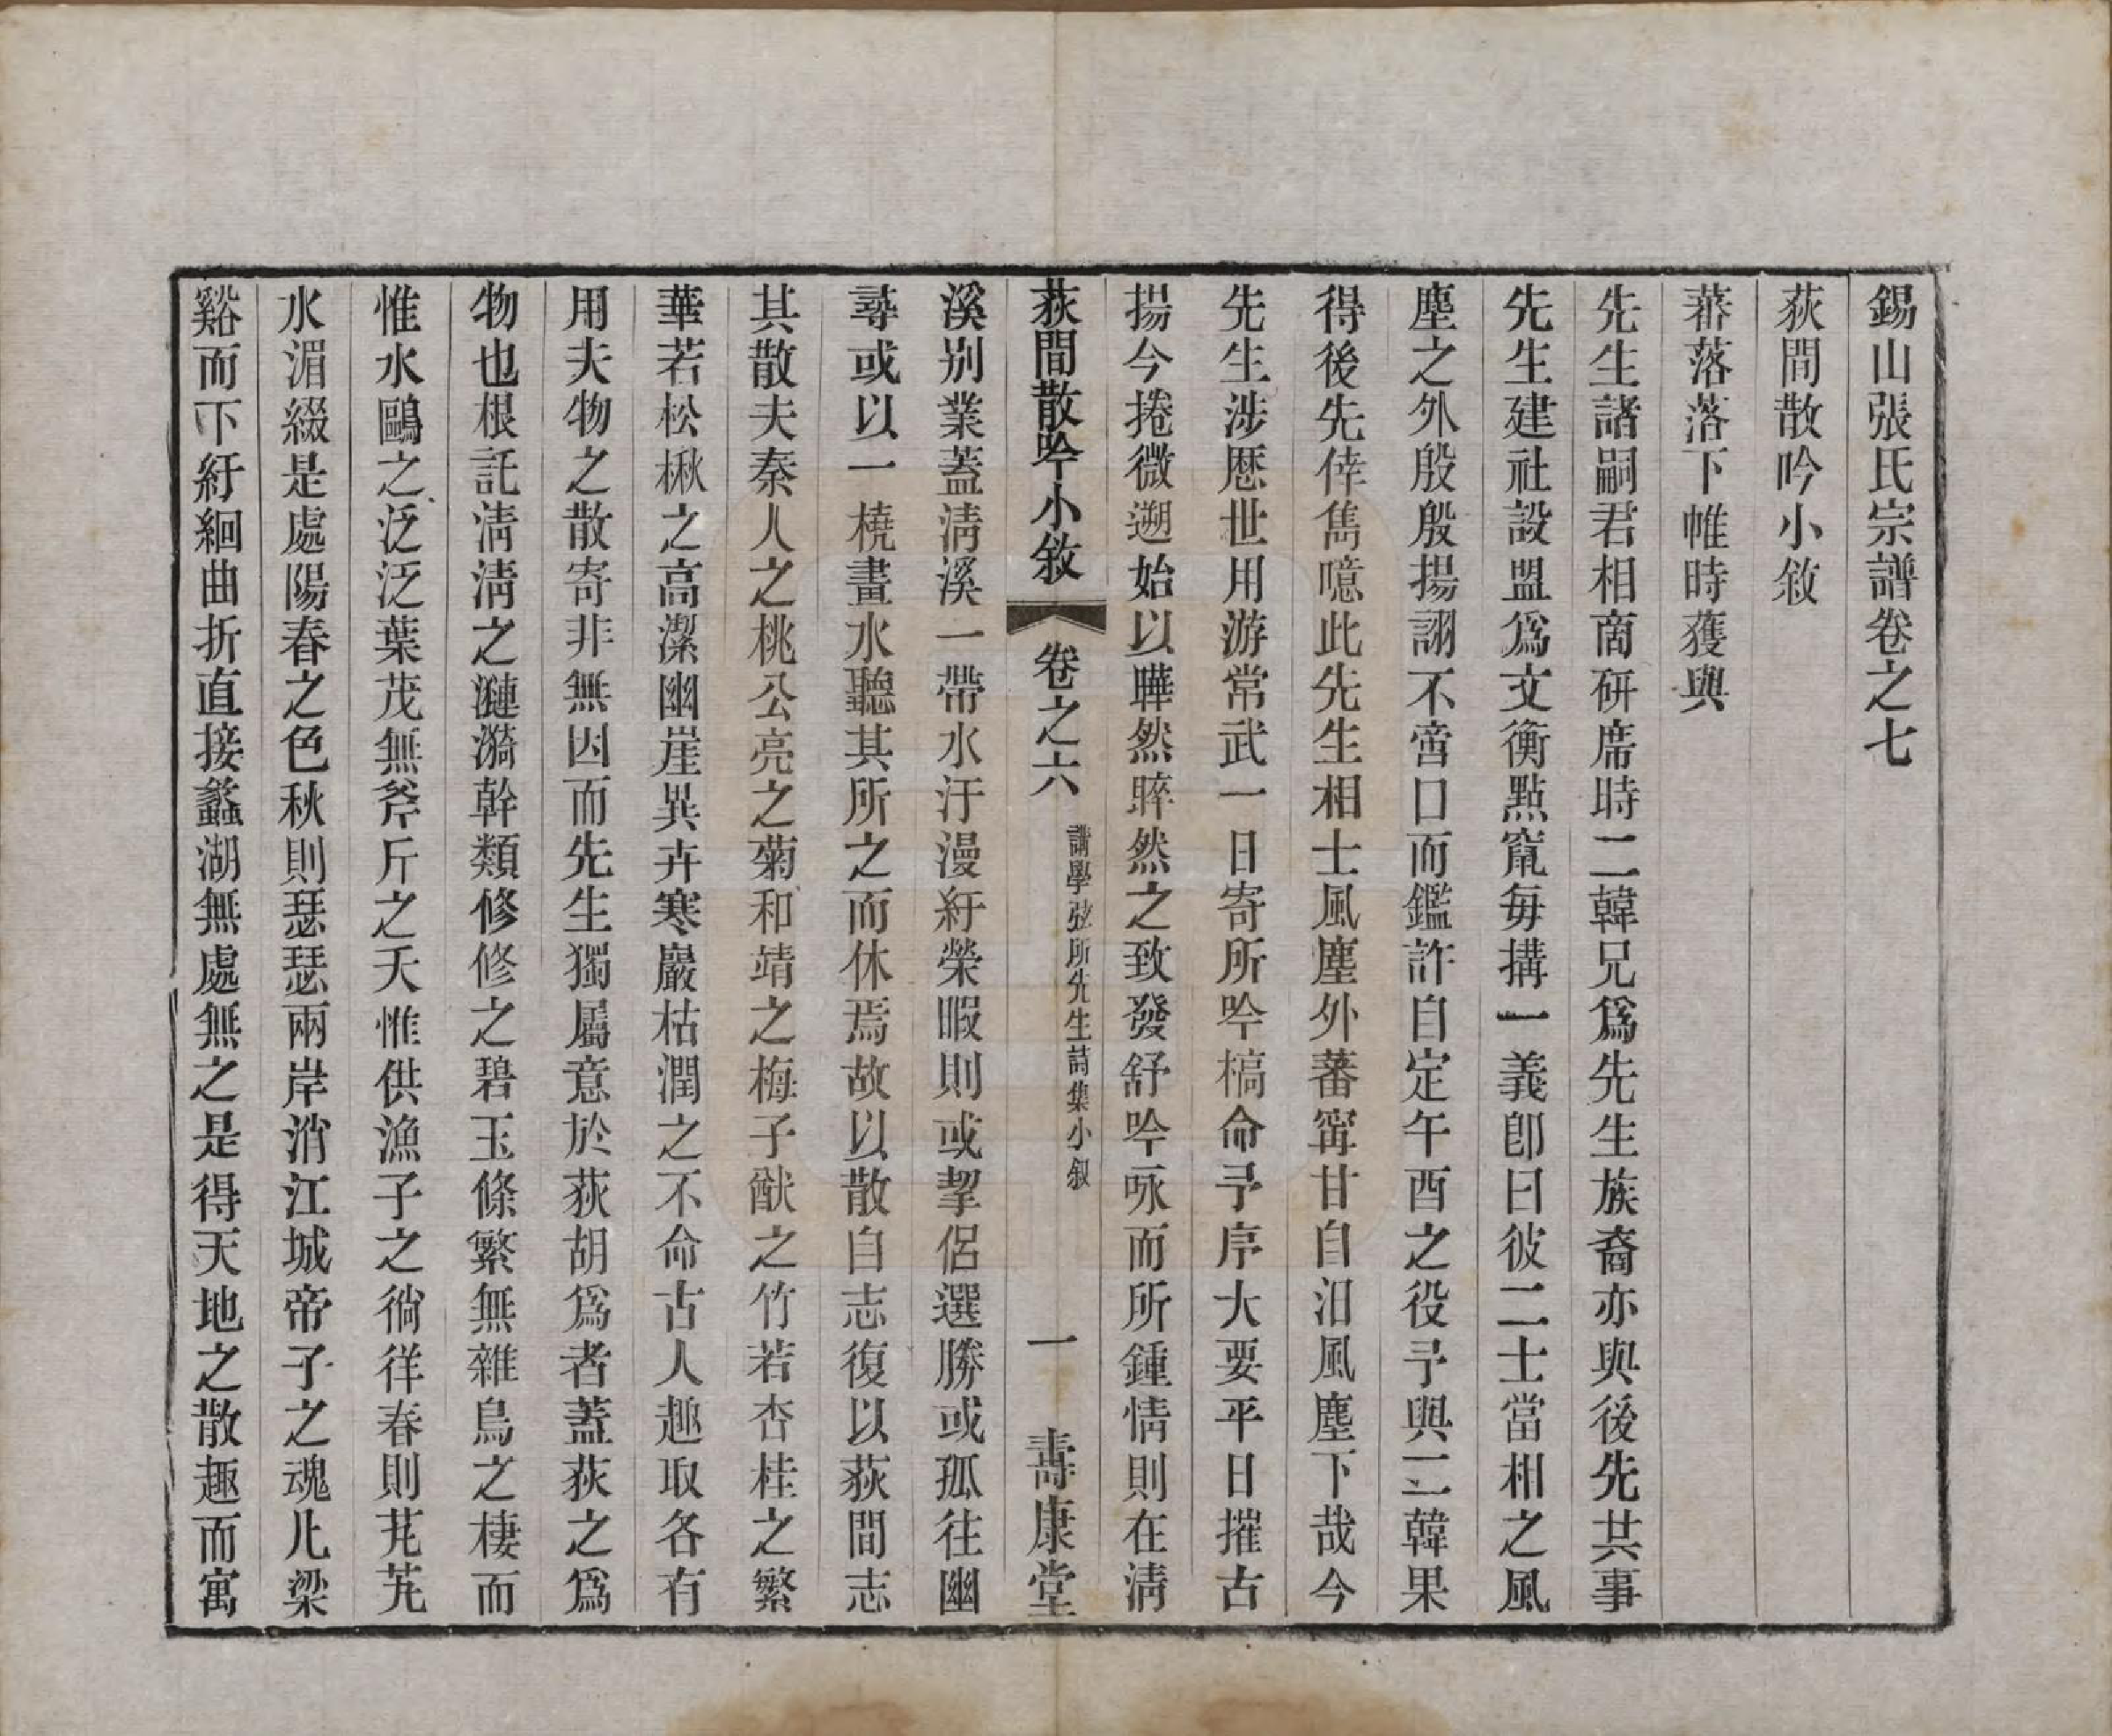 錫山張氏宗譜卷之七
荻間散吟小敘
蕃落落下帷時獲與
先生諸嗣君相商研席時二韓兄爲先生族裔亦與後先共事
先生建社設盟爲文衡點竄每搆一義卽曰彼二士當相之風
塵之外殷殷揚詡不啻口而鑑許自定午酉之役予與二韓果
得後先倖雋噫此先生相士風塵外蕃甯甘自汨風塵下哉今
先生涉歷世用游常武一日寄所吟槁命予序大要平日摧古
揚今捲微遡始以曄然睟然之致發舒吟咏而所鍾情則在淸
荻間散吟小敘 卷之六 譜學弦所先生詩集小叙 一 壽康堂
溪別業蓋淸溪一帶水汙漫紆縈暇則或挈侶選勝或孤往幽
尋或以一橈畫水聽其所之而休焉故以散自志復以荻間志
其散夫秦人之桃公亮之菊和靖之梅子猷之竹若杏桂之繁
華若松楸之高潔幽崖異卉寒巖枯澗之不命古人趣取各有
用夫物之散寄非無因而先生獨屬意於荻胡爲者蓋荻之爲
物也根託淸淸之漣漪幹類修修之碧玉條繁無雜鳥之棲而
惟水鷗之泛泛葉茂無斧斤之夭惟供漁子之徜徉春則芃芃
水湄綴是處陽春之色秋則瑟瑟兩岸消江城帝子之魂凡梁
谿而下紆綑曲折直接蠡湖無處無之是得天地之散趣而寓